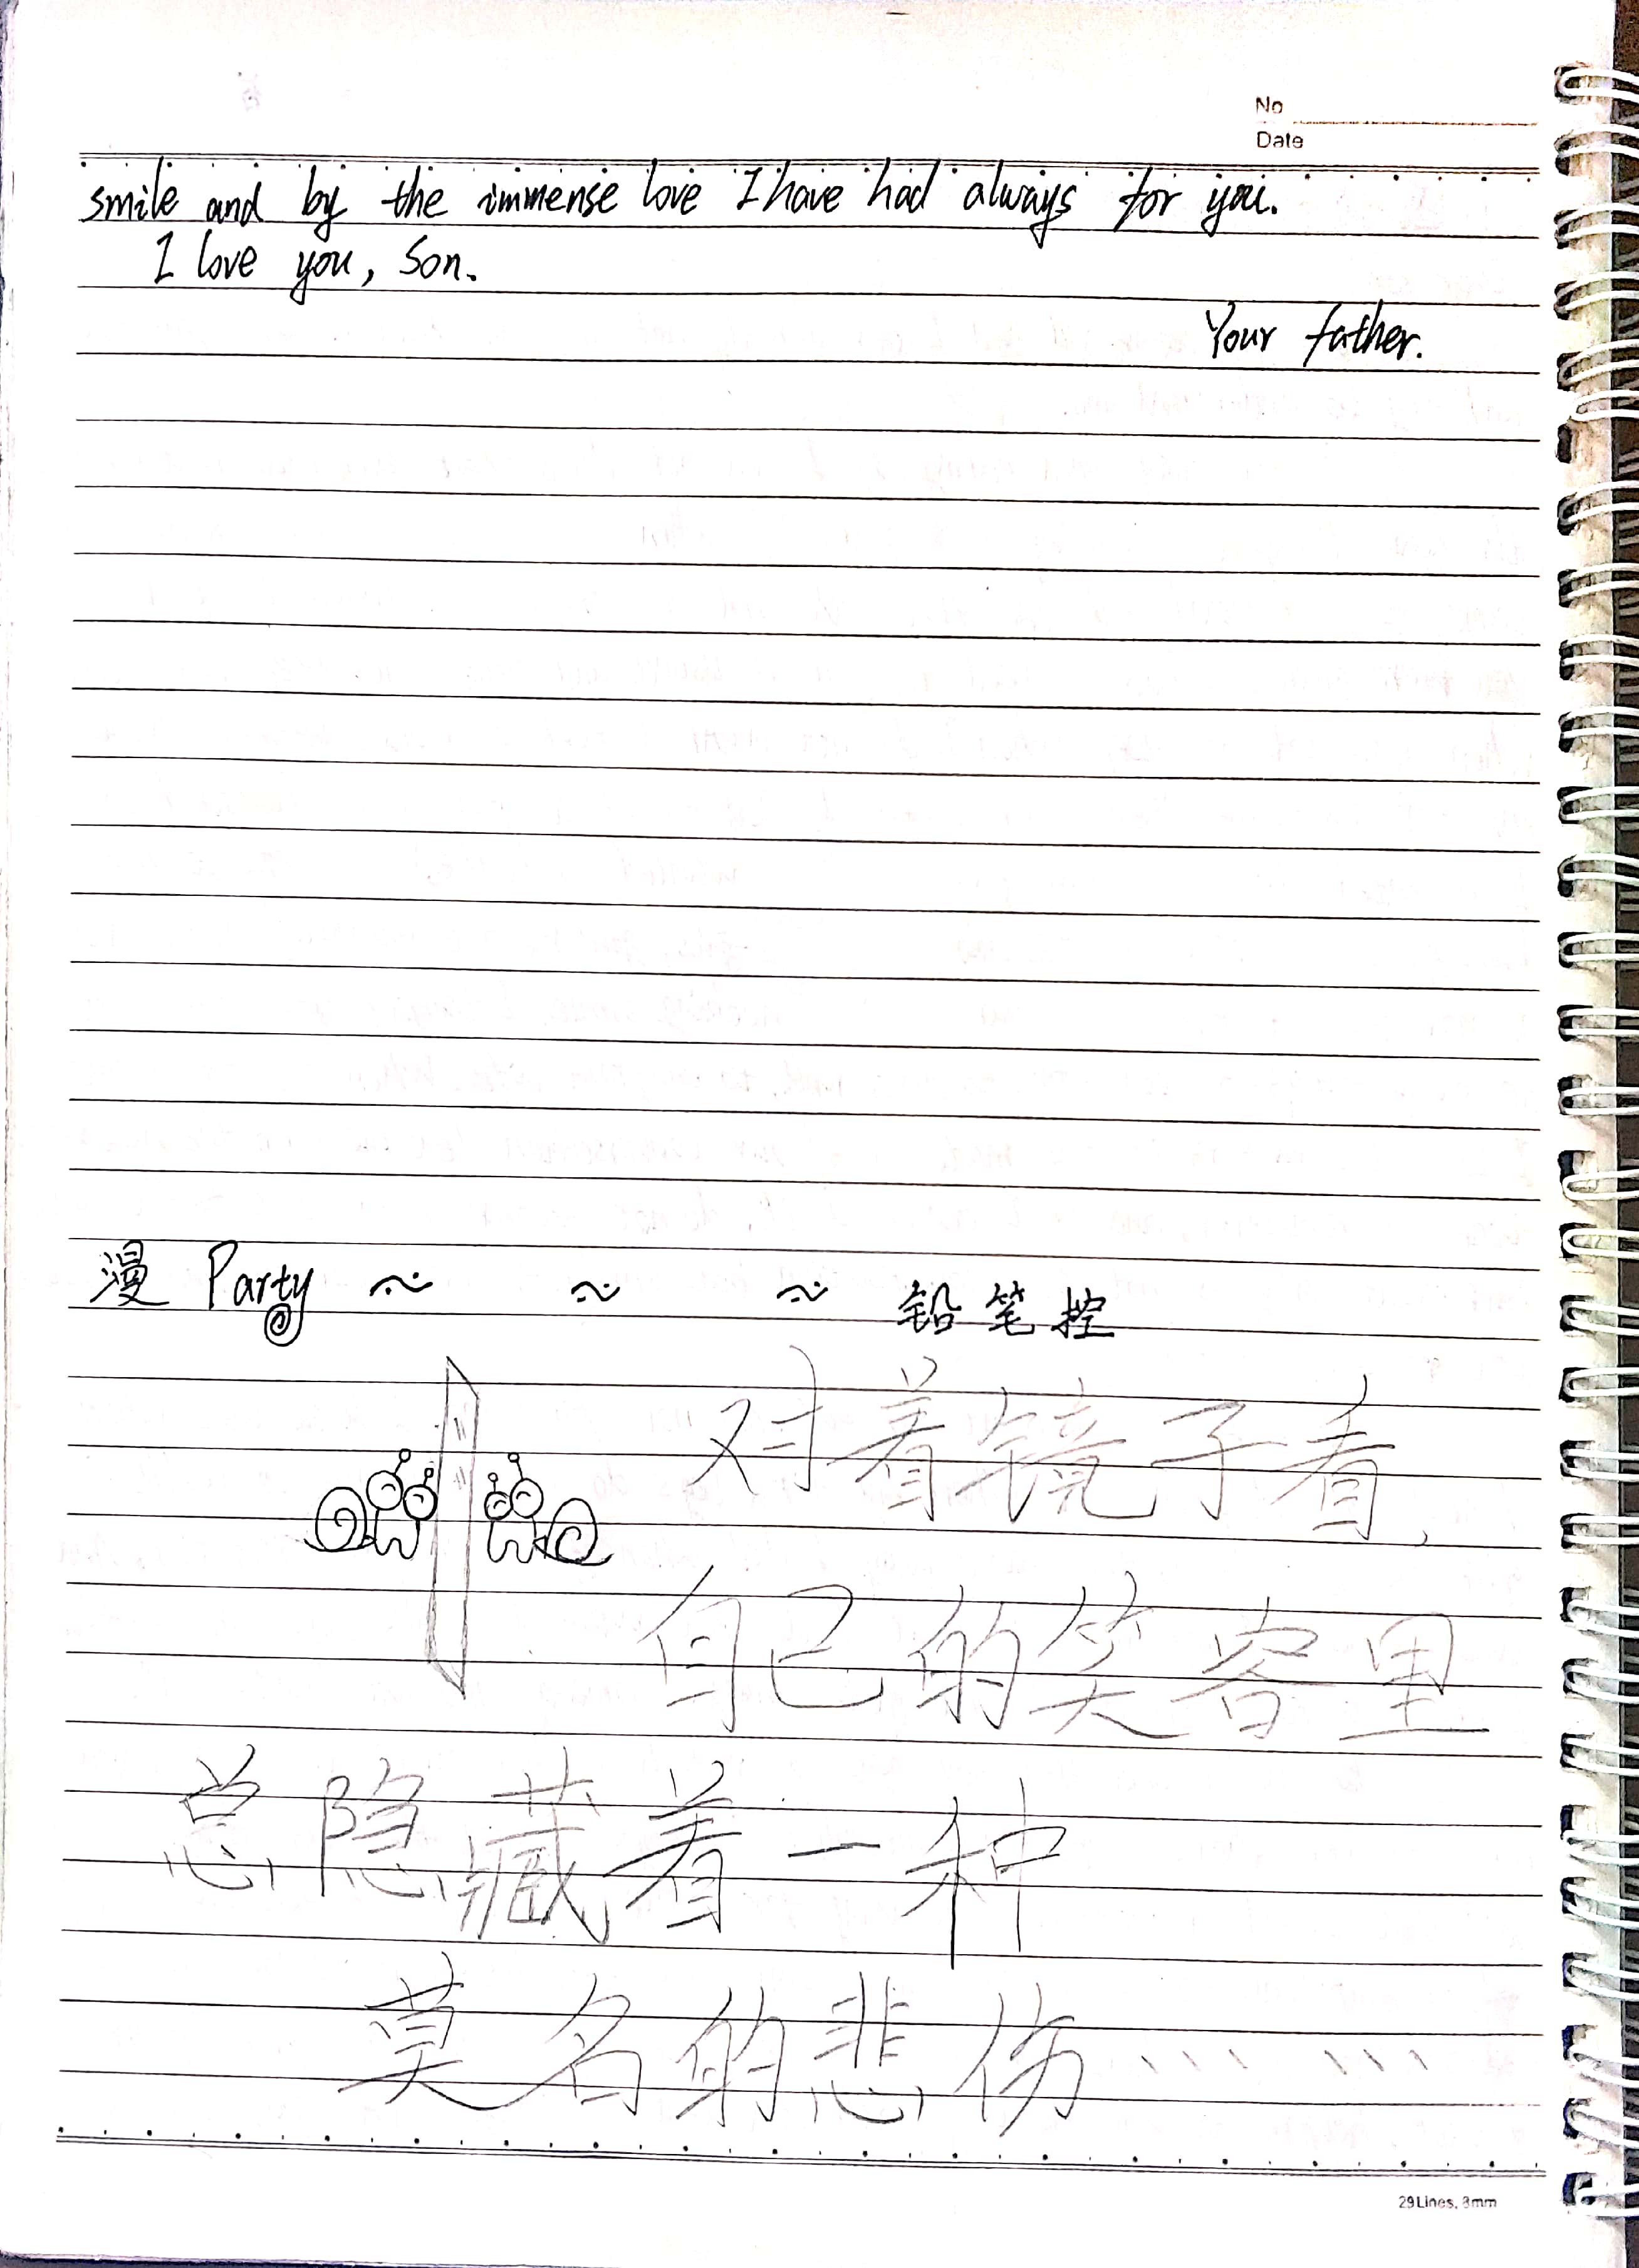 No
Date
smile and by the immense love I have had always for you.
I love you, Son.
Your father.
漫 Party ~ ~ ~ 铅笔控
对着镜子看,
自己的笑容里
总隐藏着一种
莫名的悲伤……
29Lines, 8mm